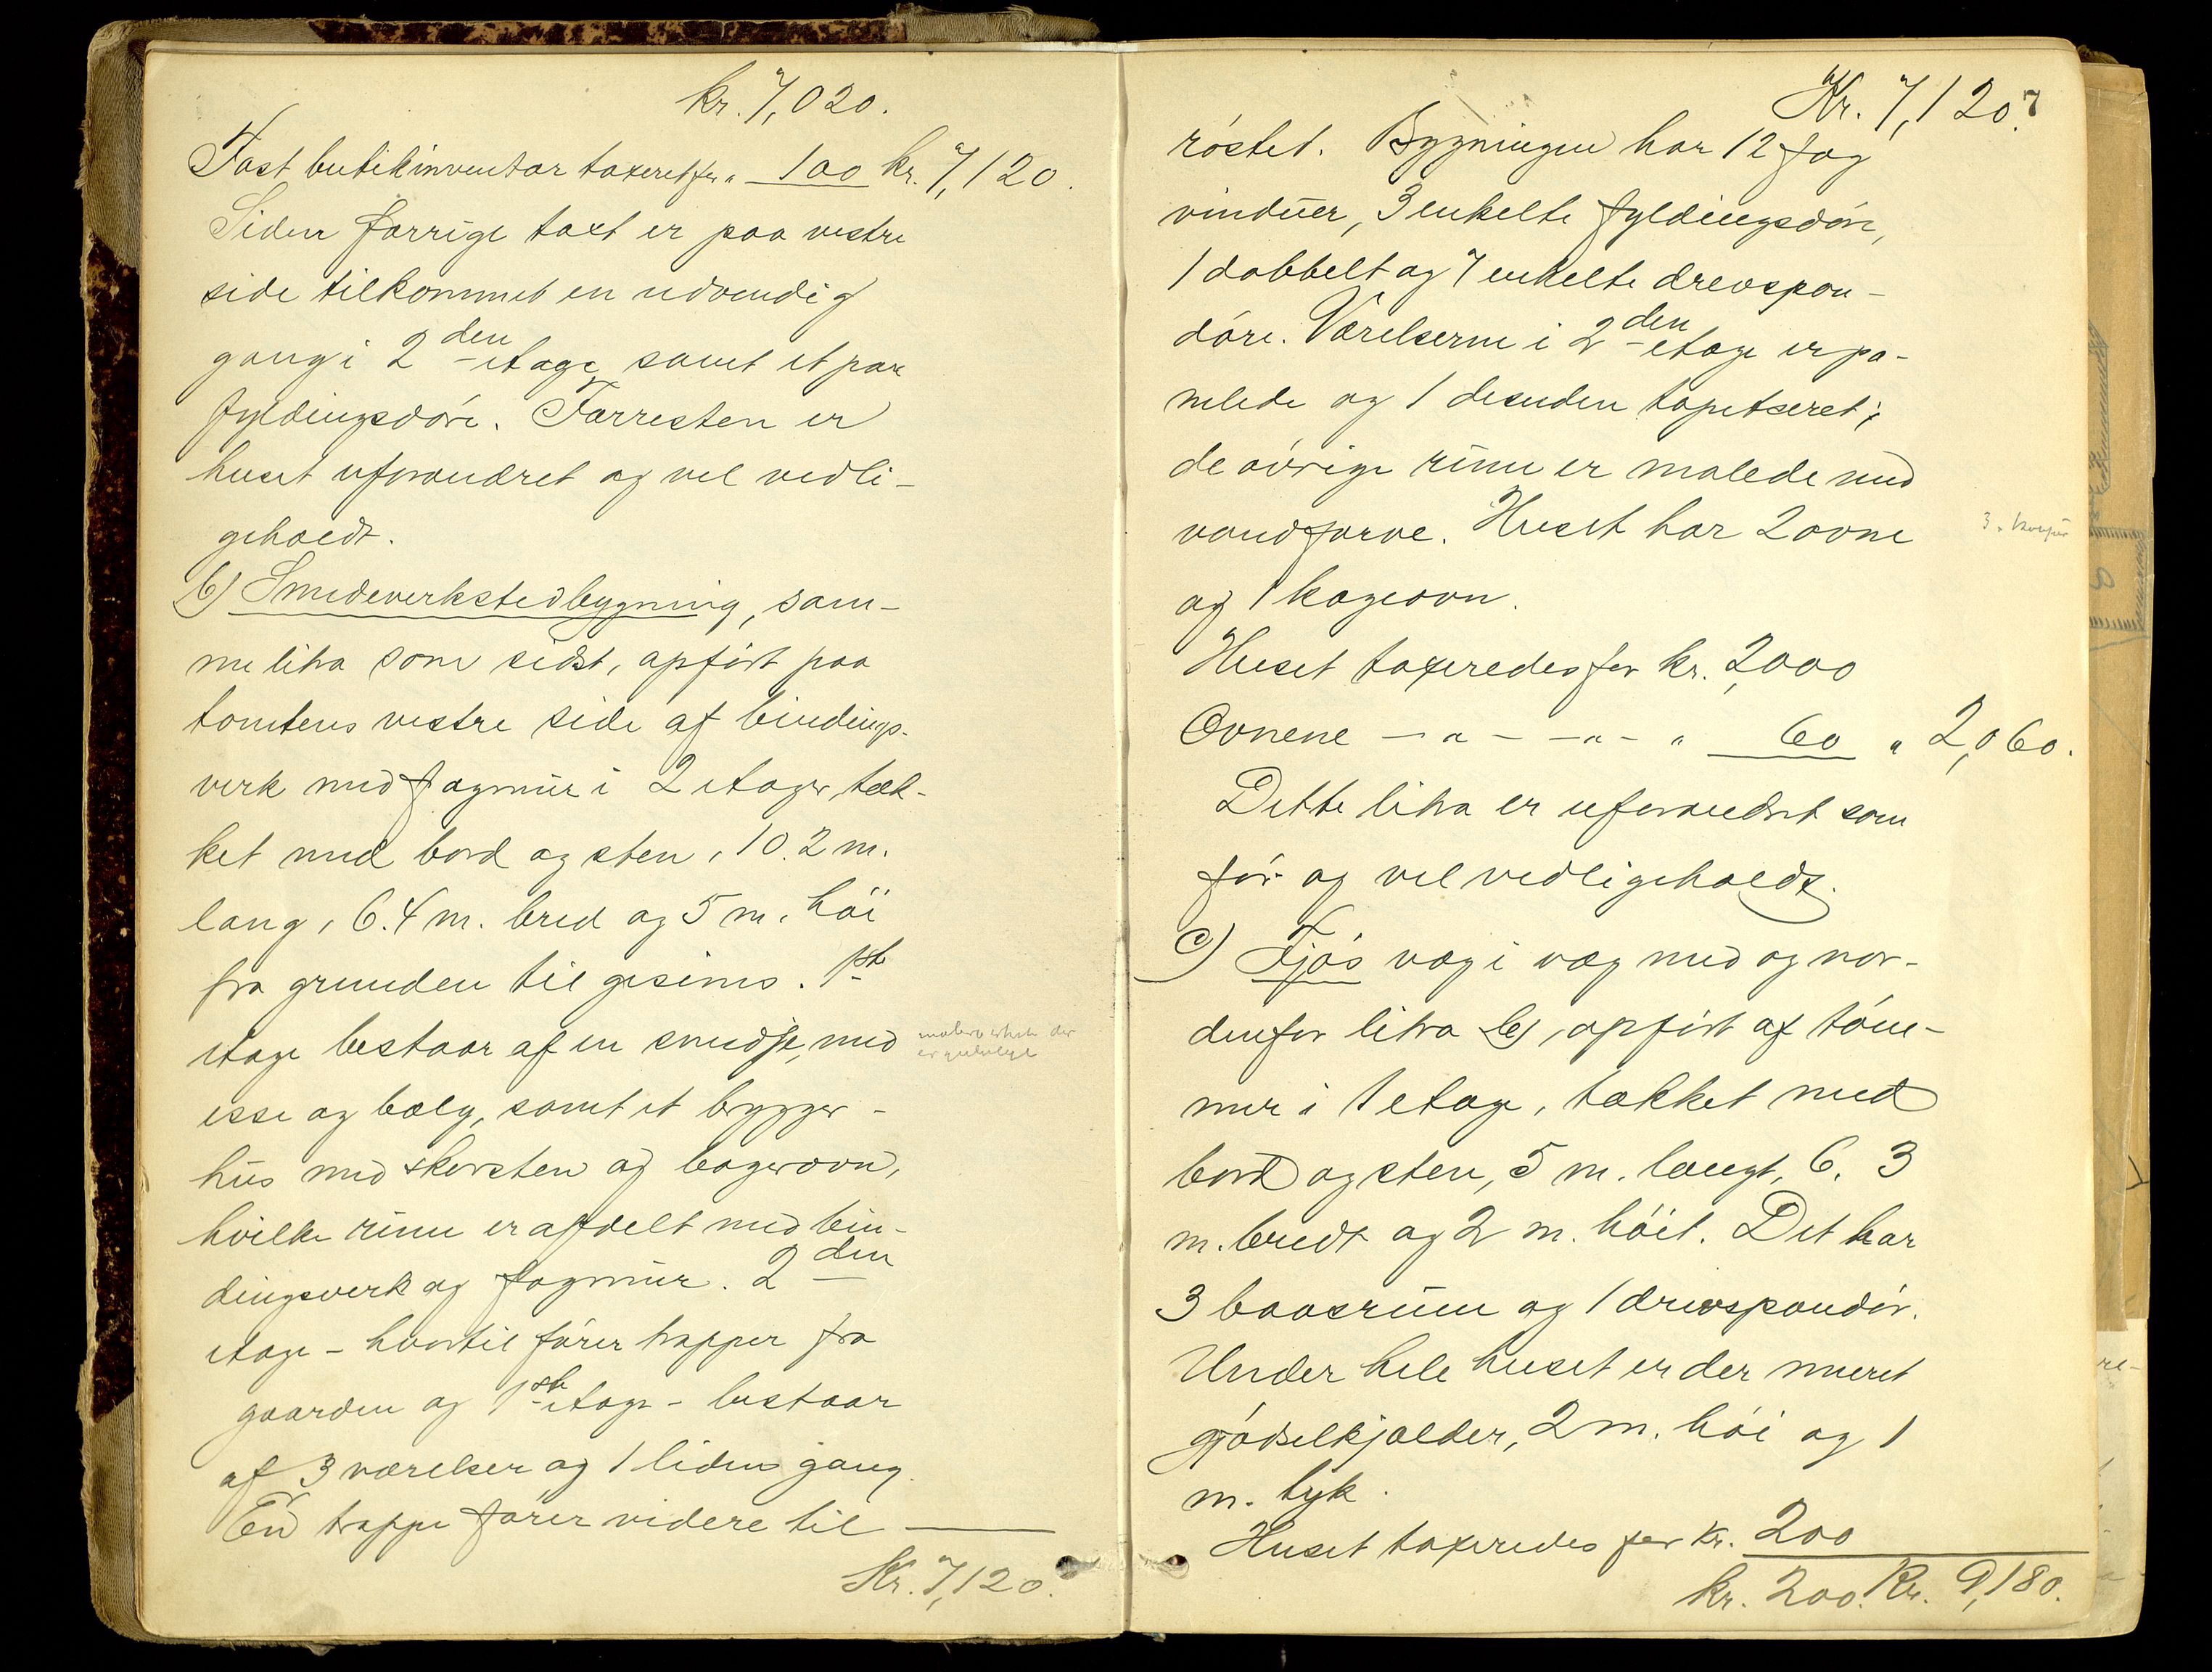 kr. 7,020.
Fast butikinventar taxeret for " 100 kr. 7,120.
Siden forrige taxt er paa vestre
side tilkommet en udvendig
gang i 2den etage samt et par
fyldingsdøre. Forresten er
huset uforandret og vel vedli-
geholdt.
b) Smedeverkstedbygning, sam-
me litra som sidst, opført paa
tomtens vestre side af bindings-
verk med fagmur i 2 etager, tæk-
ket med bord og sten, 10.2 m.
lang, 6.4 m. bred og 5 m. høi
fra grunden til gesims. 1ste
etage bestaar af en smedje, med
esse og bælg, samt et brygger-
hus med skorsten og bagerovn,
hvilke rum er afdelt med bin-
dingsverk og fagmur. 2den
etage - hvortil fører trapper fra
gaarden og 1ste etage - bestaar
af 3 værelser og 1 liden gang.
En trappe fører videre til
Kr. 7,120.
7
Kr. 7,120.
røstet. Bygningen har 12 fag
vinduer, 3 enkelte fyldingsdøre,
1 dobbelt og 7 enkelte drevspon-
døre. Værelserne i 2den etage er pa-
nelede og 1 desuden tapetseret;
de øvrige rum er malede med
vandfarve. Huset har 2 ovne
og 1 kogeovn.
Huset taxeredes for kr. 2,000
Ovnene — " — — " — " 60 " 2,060.
Dette litra er uforandret som
før og vel vedligeholdt.
c) Fjøs væg i væg med og nor-
denfor litra b), opført af tøm-
mer i 1 etage, tækket med
bord og sten, 5 m. langt, 6.3
m. bredt og 2 m. høit. Det har
3 baasrum og 1 drevspondør.
Under hele huset er der muret
gjødselkjælder, 2 m. høi og 1
m. tyk.
Huset taxeredes for kr. 200
kr. 200. Kr. 9,180.